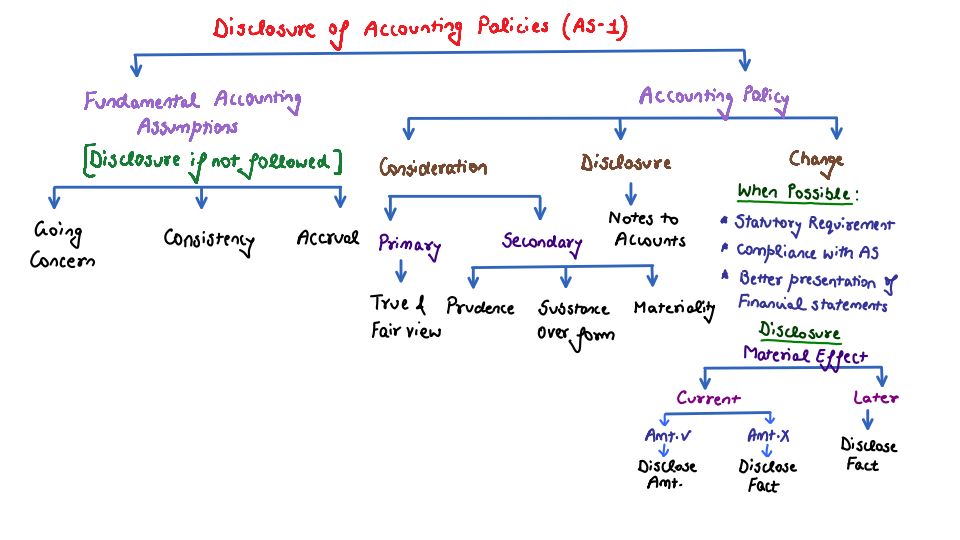 Disclosure of Accounting Policies (AS-1)
Fundamental Accounting
Assumptions
[Disclosure if not followed]
Going
Concern
Consistency
Accrual
Accounting Policy
Consideration
Primary
True &
Fair view
Secondary
Prudence
Substance
Over form
Materiality
Disclosure
Notes to
Accounts
Change
When Possible:
* Statutory Requirement
* Compliance with AS
* Better presentation of
Financial statements
Disclosure
Material Effect
Current
Amt.✓
Disclose
Amt.
Amt.X
Disclose
Fact
Later
Disclose
Fact